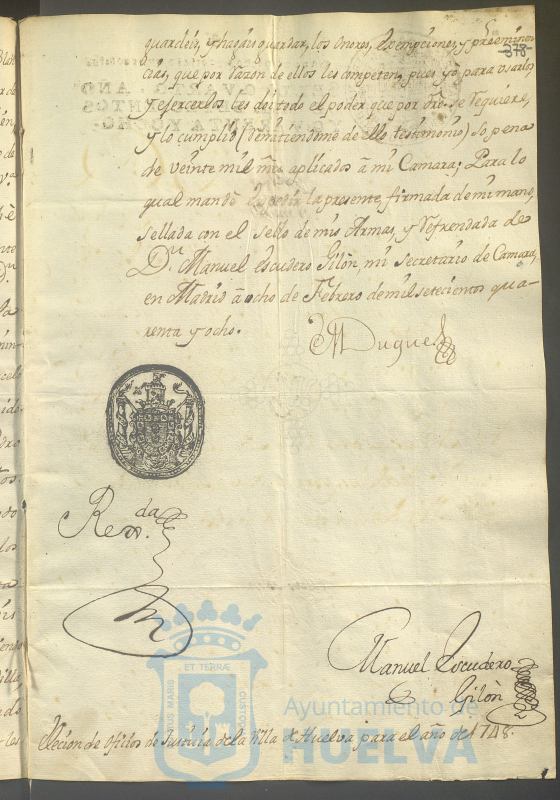 guardeis, y hagais guardar, los onores, exempciones, y preeminen
378
cias, que por razon de ellos les competen, pues yo para usarlos,
y ejercerlos les doi todo el poder que por dro. se requiere,
y lo cumplid (remitiendome de ello testimonio) so pena
de veinte mil mrs aplicados à mi Camara; Para lo
qual mandè expedir la presente, firmada de mi mano,
sellada con el sello de mis Armas, y refrendada de
Dn. Manuel Escudero Gilòn, mi Secretario de Camara,
en Madrid à ocho de Febrero de mil setecientos qua-
renta y ocho.
El Duque
Rexda.
Manuel Escudero
Gilòn
Elecion de oficios de Justicia de la Villa de Huelva para el año de 1748.
ET TERRÆ
PORTUS MARIS
CUSTODIA
Ayuntamiento de
HUELVA